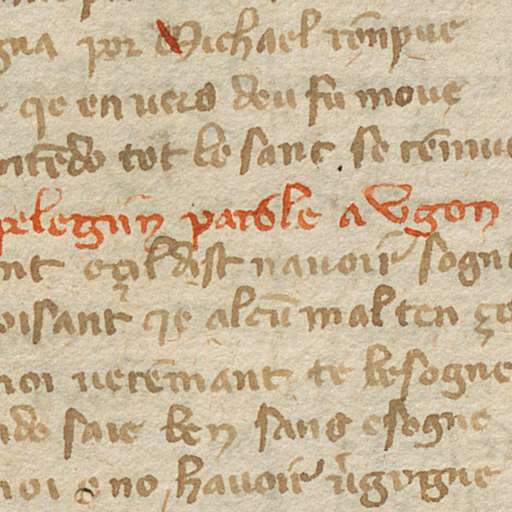 gna por Michael rēnpue
qe en uers deu fu moue
ntēdo tot le sant . se rēmue
pelegrin parole a Vgon
nt e çil dist n auoir sogne
oisant qe alcū mal ten ço
moi uerēmant te besogne
ndo saie ben sans esogne
moi e no hauoir u̍gogne